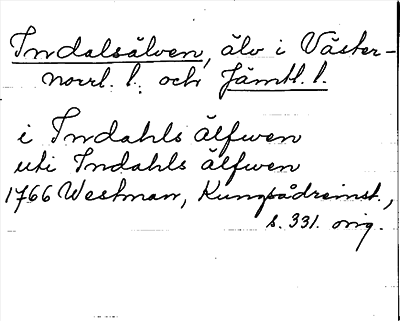 Indalsälven, älv i Väster-
norrl. l. och Jämtl. l.
i Indahls älfwen
uti Indahls älfwen
1766 Westman, Kungsådreinst.,
s. 331. orig.